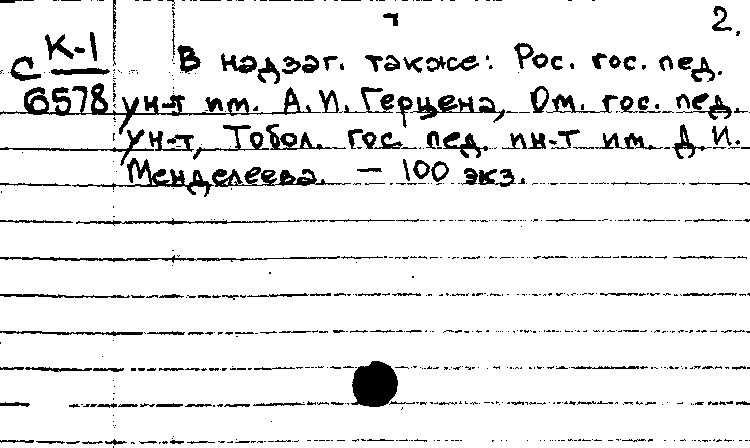 2.
С К-1
6578
В надзаг. также: Рос. гос. пед.
ун-т им. А.И. Герцена, Ом. гос. пед.
ун-т, Тобол. гос. пед. ин-т им. Д.И.
Менделеева. — 100 экз.